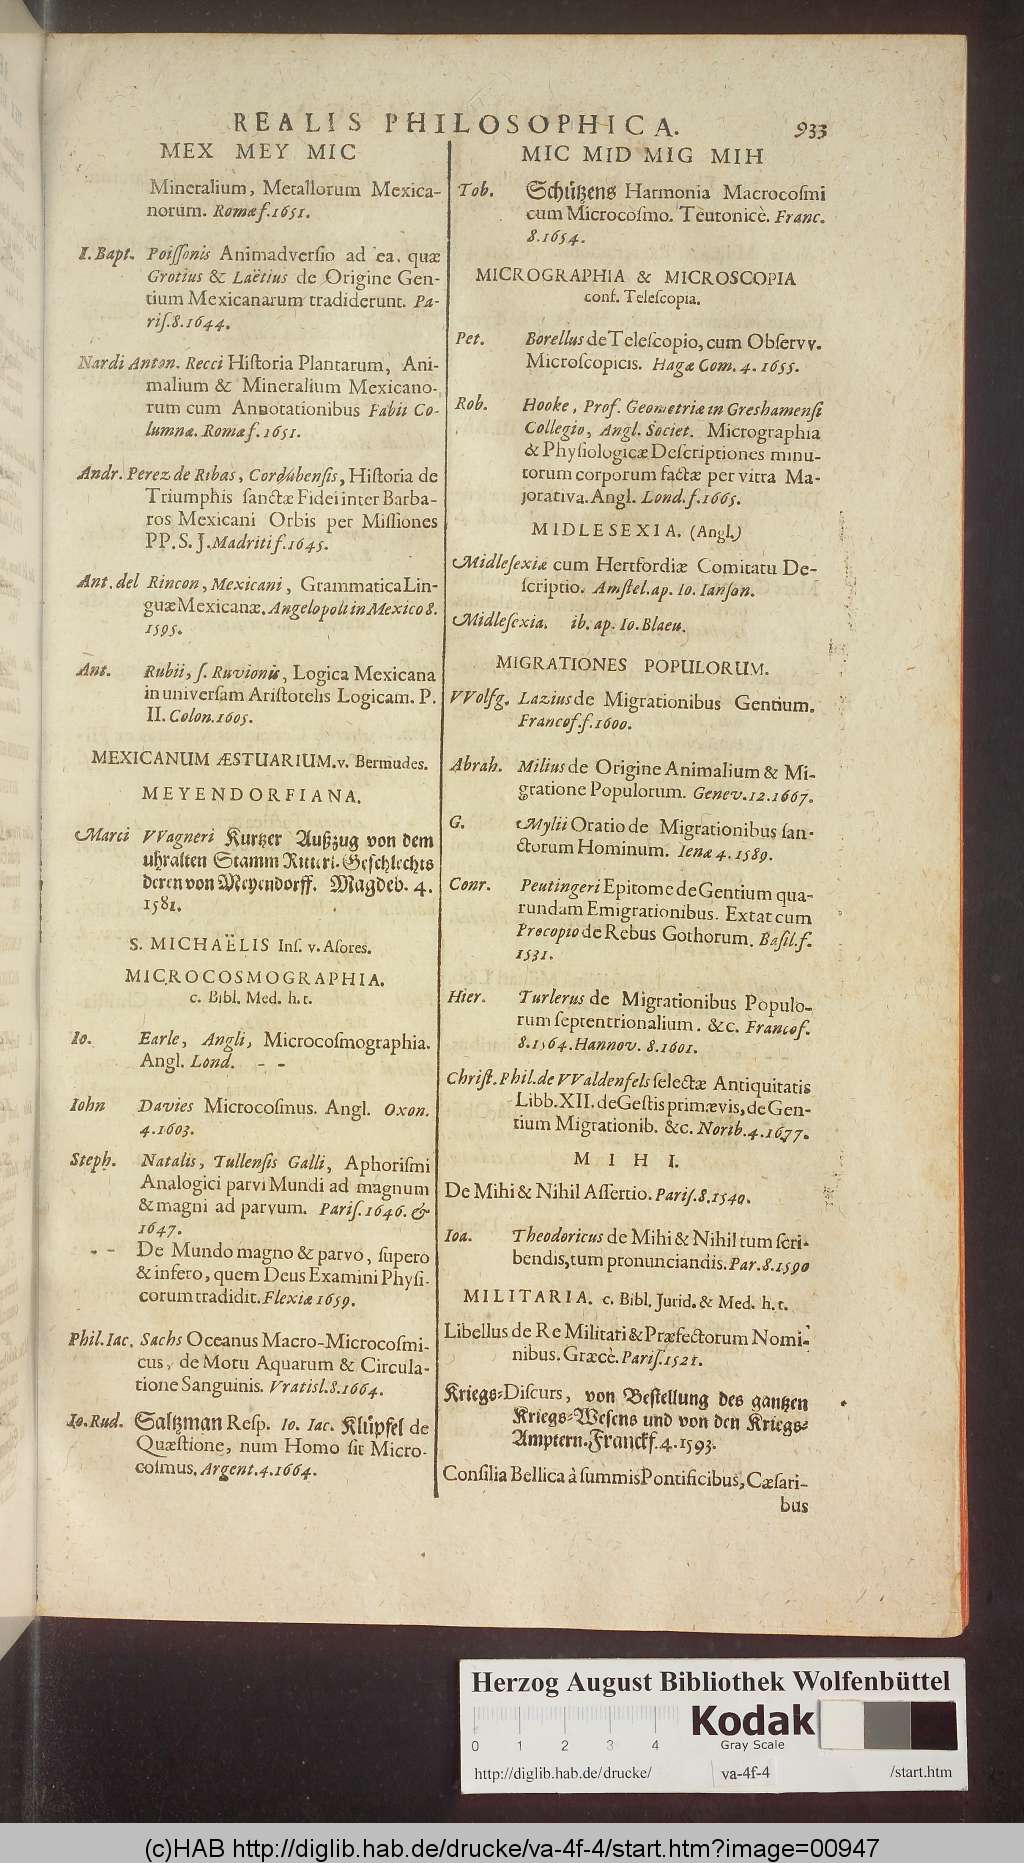 REALIS PHILOSOPHICA.
933
MEX MEY MIC
Mineralium, Metallorum Mexica-
norum. Romæ f. 1651.
I. Bapt. Poiſſonis Animadverſio ad ea, quæ
Grotius & Laëtius de Origine Gen-
tium Mexicanarum tradiderunt. Pa-
riſ. 8. 1644.
Nardi Anton. Recci Hiſtoria Plantarum, Ani-
malium & Mineralium Mexicano-
rum cum Annotationibus Fabii Co-
lumnæ. Romæ f. 1651.
Andr. Perez de Ribas, Cordúbenſis, Hiſtoria de
Triumphis ſanctæ Fidei inter Barba-
ros Mexicani Orbis per Miſſiones
PP. S. J. Madriti f. 1645.
Ant. del Rincon, Mexicani, Grammatica Lin-
guæ Mexicanæ. Angelopoli in Mexico 8.
1595.
Ant. Rubii, ſ. Ruvionis, Logica Mexicana
in univerſam Ariſtotelis Logicam. P.
II. Colon. 1605.
MEXICANUM ÆSTUARIUM. v. Bermudes.
MEYENDORFIANA.
Marci VVagneri Kurtzer Außzug von dem
uhralten Stamm Ritterl. Geſchlechts
deren von Meyendorff. Magdeb. 4.
1581.
S. MICHAËLIS Inſ. v. Aſores.
MICROCOSMOGRAPHIA.
c. Bibl. Med. h. t.
Io. Earle, Angli, Microcoſmographia.
Angl. Lond. - -
Iohn Davies Microcoſmus. Angl. Oxon.
4. 1603.
Steph. Natalis, Tullenſis Galli, Aphoriſmi
Analogici parvi Mundi ad magnum
& magni ad parvum. Pariſ. 1646. &
1647.
- - De Mundo magno & parvo, ſupero
& infero, quem Deus Examini Phyſi-
corum tradidit. Flexiæ 1659.
Phil. Iac. Sachs Oceanus Macro-Microcoſmi-
cus, de Motu Aquarum & Circula-
tione Sanguinis. Vratisl. 8. 1664.
Io. Rud. Saltzman Reſp. Io. Iac. Klüpfel de
Quæſtione, num Homo ſit Micro-
coſmus. Argent. 4. 1664.
MIC MID MIG MIH
Tob. Schützens Harmonia Macrocoſmi
cum Microcoſmo. Teutonicè. Franc.
8. 1654.
MICROGRAPHIA & MICROSCOPIA
conf. Teleſcopia.
Pet. Borellus de Teleſcopio, cum Obſervv.
Microſcopicis. Hagæ Com. 4. 1655.
Rob. Hooke, Prof. Geometriæ in Greshamenſi
Collegio, Angl. Societ. Micrographia
& Phyſiologicæ Deſcriptiones minu-
torum corporum factæ per vitra Ma-
jorativa. Angl. Lond. f. 1665.
MIDLESEXIA. (Angl.)
Midleſexiæ cum Hertfordiæ Comitatu De-
ſcriptio. Amſtel. ap. Io. Ianſon.
Midleſexia. ib. ap. Io. Blaeu.
MIGRATIONES POPULORUM.
VVolfg. Lazius de Migrationibus Gentium.
Francof. f. 1600.
Abrah. Milius de Origine Animalium & Mi-
gratione Populorum. Genev. 12. 1667.
G. Mylii Oratio de Migrationibus ſan-
ctorum Hominum. Ienæ 4. 1589.
Conr. Peutingeri Epitome de Gentium qua-
rundam Emigrationibus. Extat cum
Procopio de Rebus Gothorum. Baſil. f.
1531.
Hier. Turlerus de Migrationibus Populo-
rum ſeptentrionalium. &c. Francof.
8. 1564. Hannov. 8. 1601.
Chriſt. Phil. de VValdenfels ſelectæ Antiquitatis
Libb. XII. de Geſtis primævis, de Gen-
tium Migrationib. &c. Norib. 4. 1677.
MIHI.
De Mihi & Nihil Aſſertio. Pariſ. 8. 1540.
Ioa. Theodoricus de Mihi & Nihil tum ſcri-
bendis, tum pronunciandis. Par. 8. 1590
MILITARIA. c. Bibl. Jurid. & Med. h. t.
Libellus de Re Militari & Præfectorum Nomi-
nibus. Græcè. Pariſ. 1521.
Kriegs-Diſcurs, von Beſtellung des gantzen
Kriegs-Weſens und von den Kriegs-
Amptern. Franckf. 4. 1593.
Conſilia Bellica à ſummis Pontificibus, Cæſari-
bus
Herzog August Bibliothek Wolfenbüttel
0 1 2 3 4
Kodak
Gray Scale
http://diglib.hab.de/drucke/ va-4f-4 /start.htm
(c)HAB http://diglib.hab.de/drucke/va-4f-4/start.htm?image=00947